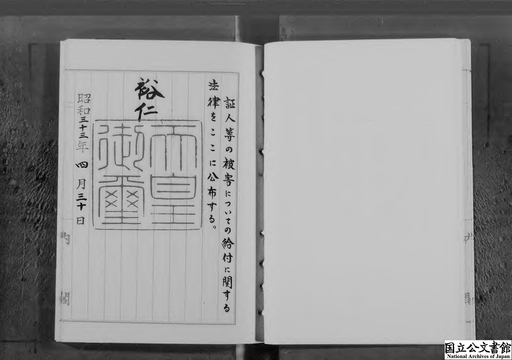 証人等の被害についての給付に関する
法律をここに公布する。
裕仁
天皇
御璽
昭和三十三年四月三十日
内閣
国立公文書館
National Archives of Japan